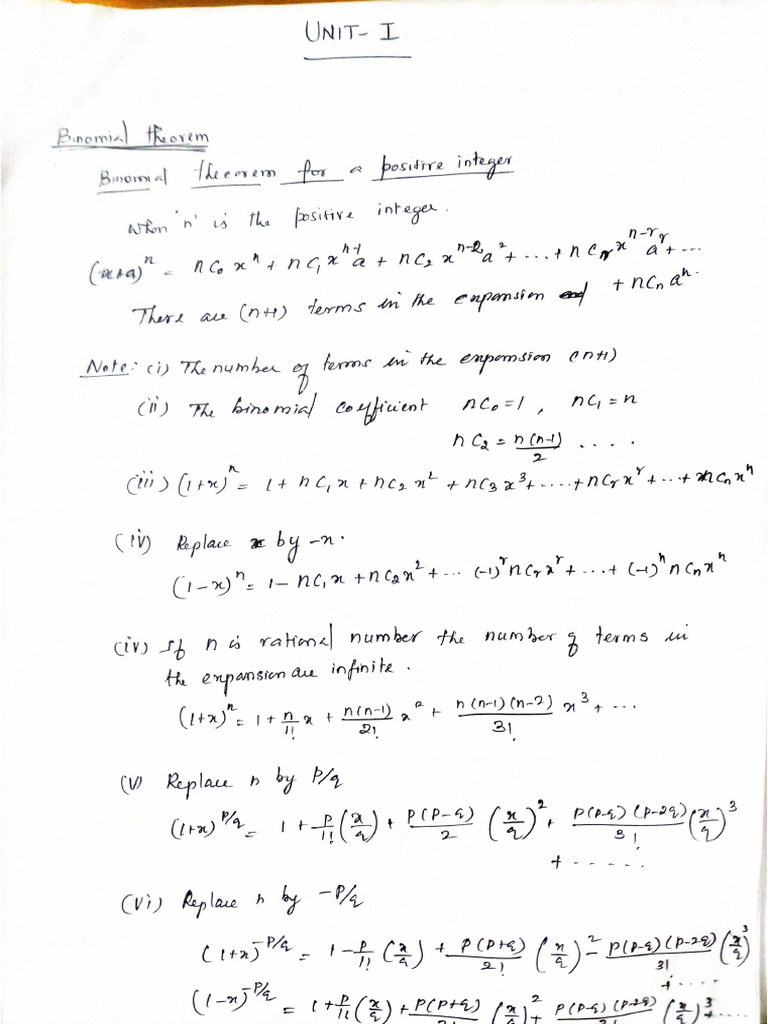 UNIT- I
Binomial theorem
Binomial theorem for a positive integer
When 'n' is the positive integer.
(x+a)^n = nC₀ x^n + nC₁ x^(n-1) a + nC₂ x^(n-2) a² + ... + nCᵣ x^(n-r) a^r + ...
+ nCₙ a^n.
There are (n+1) terms in the expansion
Note: (i) The number of terms in the expansion (n+1)
(ii) The binomial coefficient nC₀ = 1 , nC₁ = n
nC₂ = n(n-1)/2 ....
(iii) (1+x)^n = 1 + nC₁ x + nC₂ x² + nC₃ x³ + .... + nCᵣ x^r + ... + nCₙ x^n
(iv) Replace x by -x.
(1-x)^n = 1 - nC₁ x + nC₂ x² + ... (-1)^r nCᵣ x^r + ... + (-1)^n nCₙ x^n
(iv) If n is rational number the number of terms in
the expansion are infinite.
(1+x)^n = 1 + n/1! x + n(n-1)/2! x² + n(n-1)(n-2)/3! x³ + ...
(v) Replace n by P/q
(1+x)^(P/q) = 1 + P/1! (x/q) + P(P-q)/2 (x/q)² + P(P-q)(P-2q)/3! (x/q)³
+ -----
(vi) Replace n by -P/q
(1+x)^(-P/q) = 1 - P/1! (x/q) + P(P+q)/2! (x/q)² - P(P-q)(P-2q)/3! (x/q)³
+ ....
(1-x)^(-P/q) = 1 + P/1! (x/q) + P(P+q)/2! (x/q)² + P(P-q)(P-2q)/3! (x/q)³ + ....